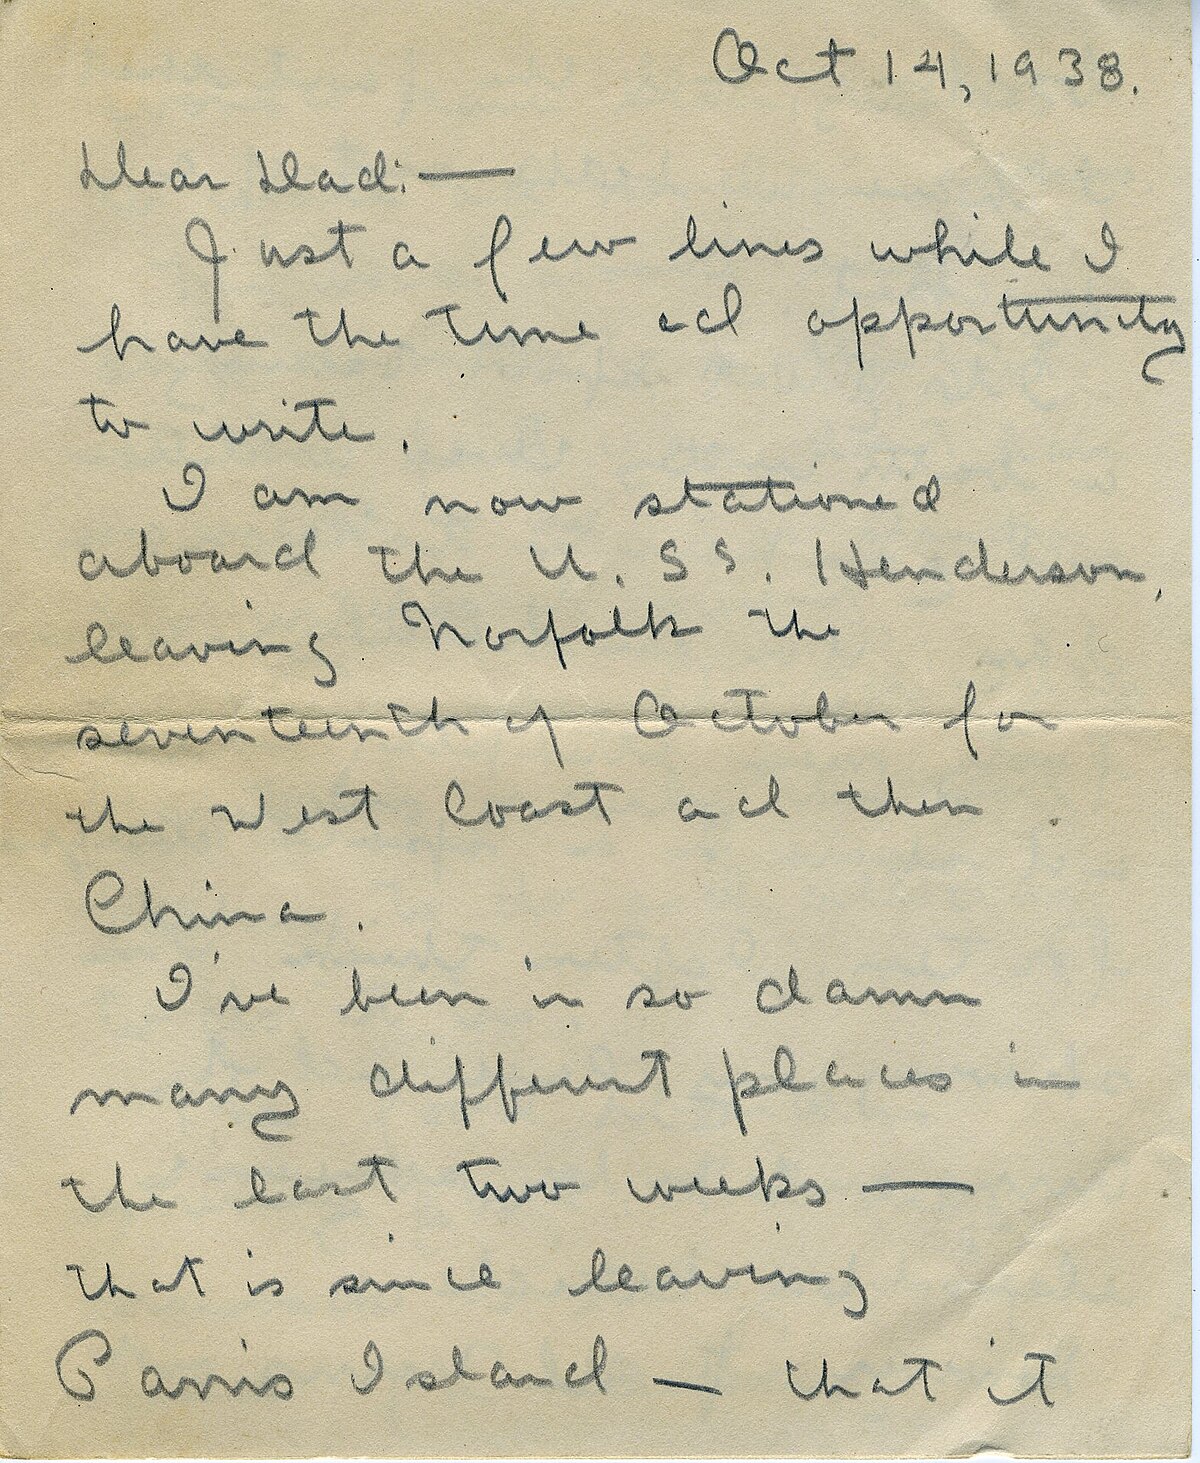 Oct 14, 1938.
Dear Dad:—
Just a few lines while I
have the time ad opportunity
to write.
I am now stationed
aboard the U.SS. Henderson,
leaving Norfolk the
seventeenth of October for
the West Coast ad then
China.
I've been in so damn
many different places in
the last two weeks —
that is since leaving
Parris Island — that it